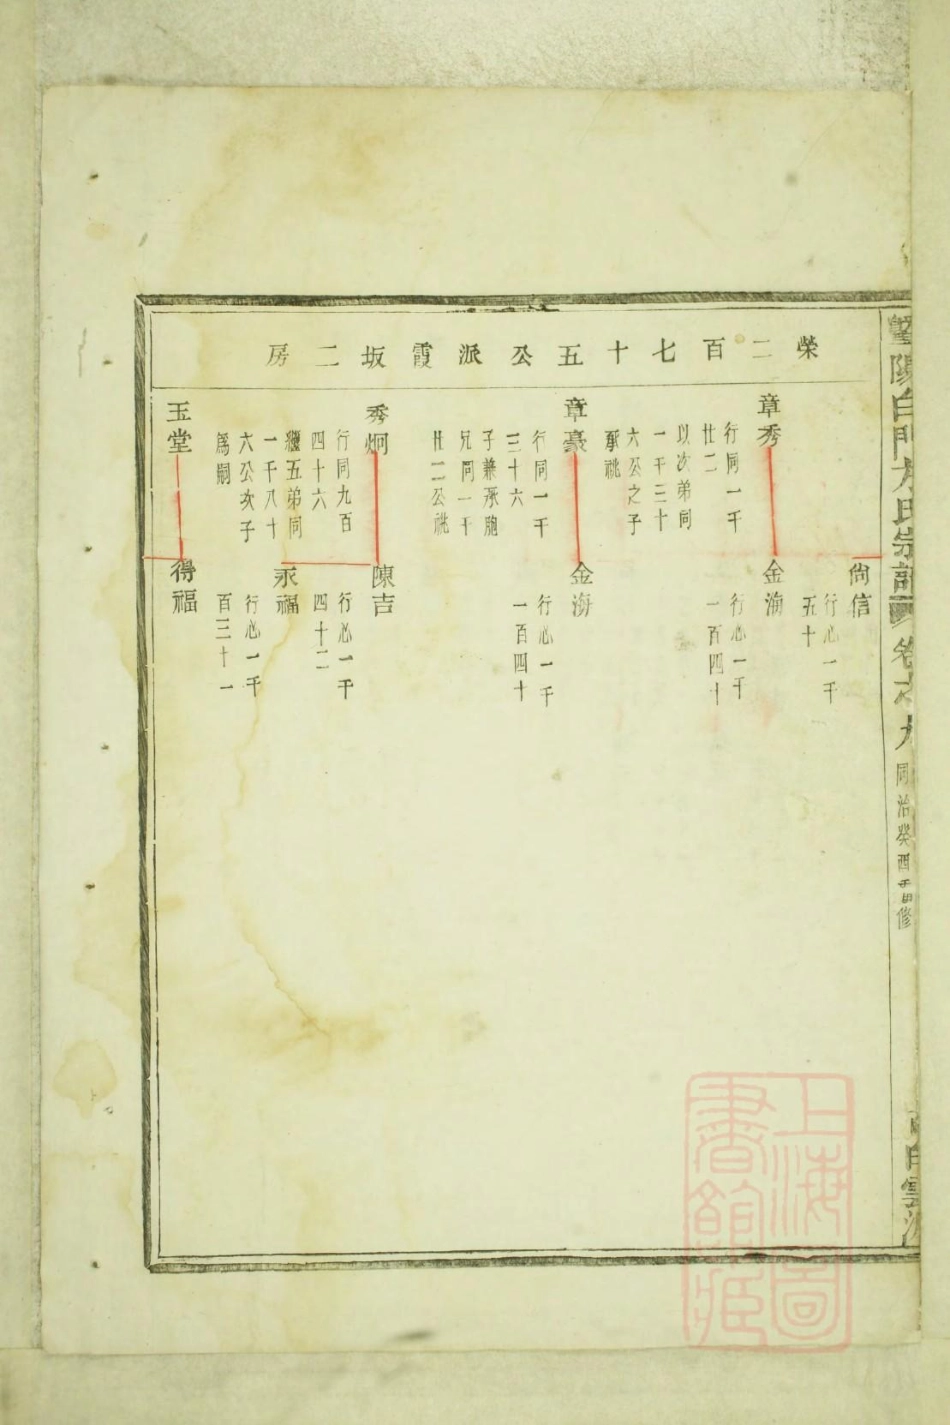 榮二百七十五公派霞坂二房
尙信
行心一千
五十
章秀
行同一千
廿二
以次弟同
一千三十
六公之子
承祧
金海
行心一千
一百四十
章豪
行同一千
三十六
子兼承胞
兄同一千
廿二公祧
金海
行心一千
一百四十
秀炯
行同九百
四十六
繼五弟同
一千八十
六公次子
爲嗣
陳吉
行心一千
四十二
永福
行心一千
百三十一
玉堂
得福
暨陽白門方氏宗譜
卷之九
同治癸酉重修
白雲派
上海圖書館藏